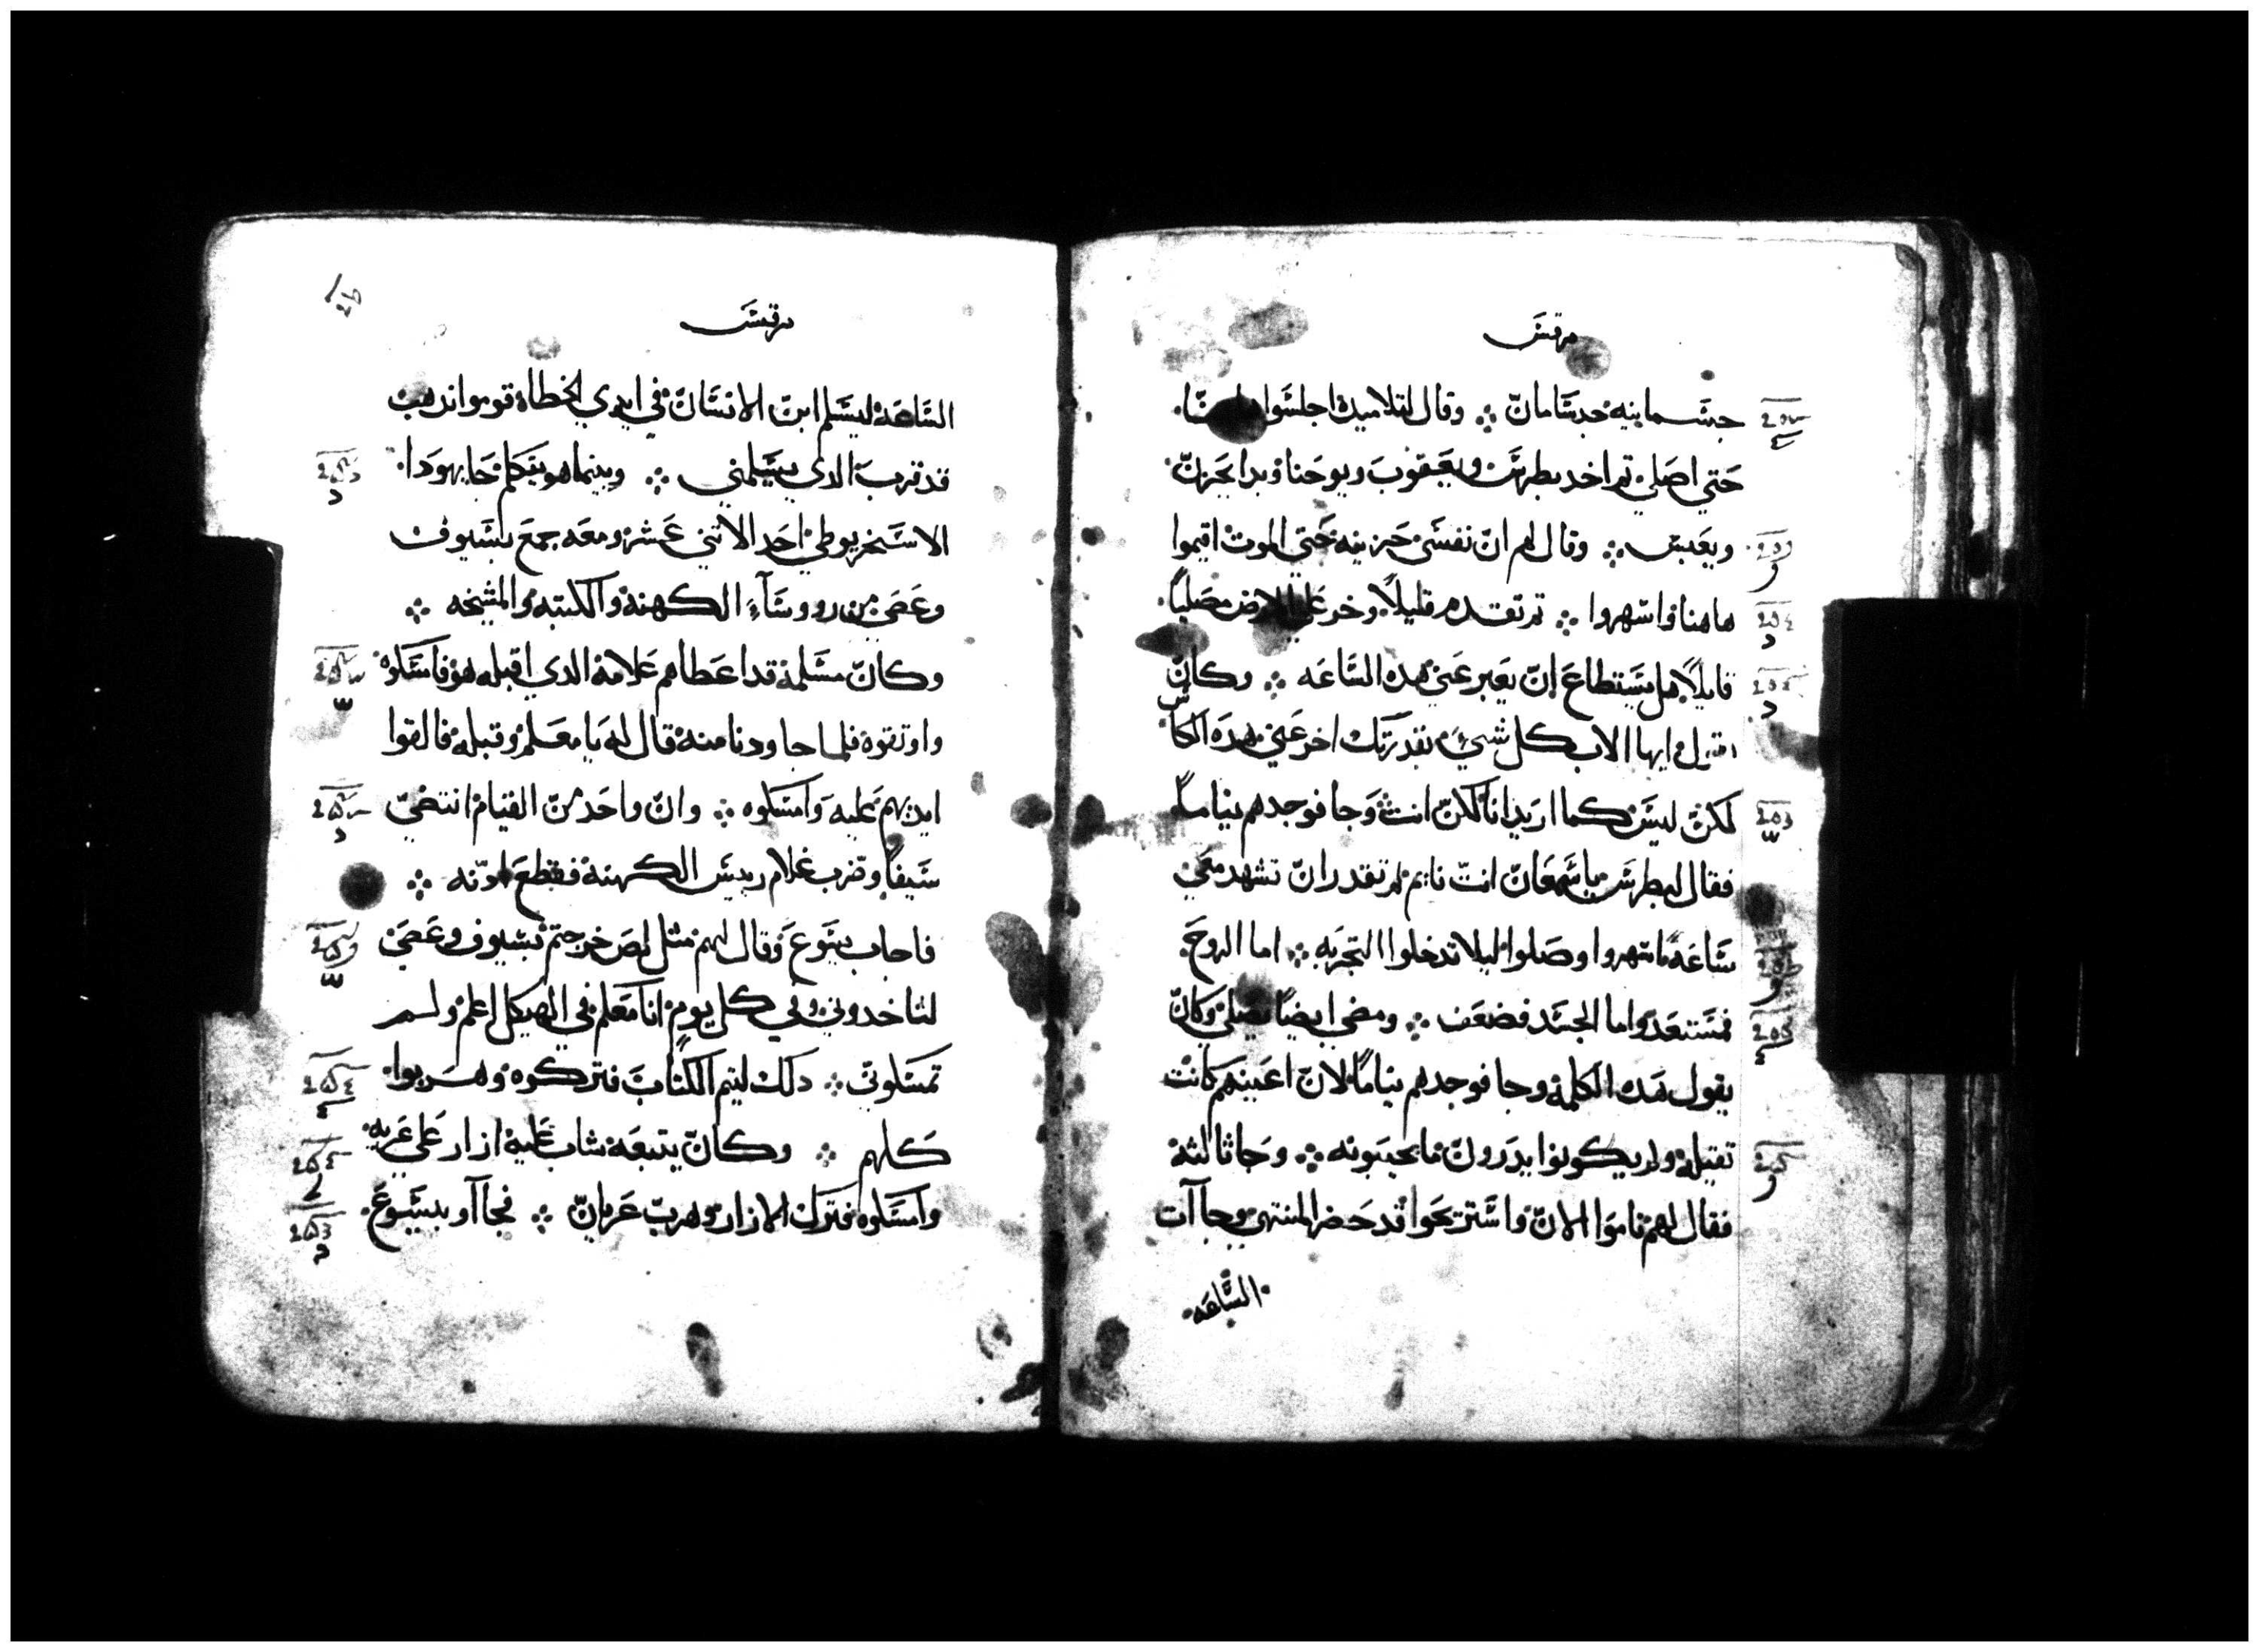 مرقس
جسمانيه جدسامان ⁘ وقال لتلاميده اجلسوا هاهنا
حتي اصلي تم اخد بطرس ويعقوب ويوحنا وبدا يحزن
ويعبس ⁘ وقال لهم ان نفسي حزينه حتي الموت اقيموا
هاهنا واسهروا ⁘ تم تقدم قليلاً وخر علي الارض مصلياً
قايلاً هل يستطاع ان يعبر عني هده الساعه ⁘ وكان
يقول ايها الاب كل شيء بقدرتك اخر عني هده الكاس
لكن ليس كما اريد انا لكن انت وجا فوجدهم نياماً
فقال لبطرس يا سمعان انت نايم لم تقدر ان تسهر معي
ساعة اسهروا وصلوا ليلا تدخلوا التجربه ⁘ اما الروح
فمستعد واما الجسد فضعف ⁘ ومضي ايضاً يصلي وكان
يقول هده الكلمه وجا فوجدهم نياماً لان اعينهم كانت
تقيله ولم يكونوا يدرون ما يجيبونه ⁘ وجا ثالثة
فقال لهم ناموا الان واستريحوا قد حضر المنتهي وجاآت
الساعه
مرقس
الساعة ليسلم ابن الانسان في ايدي الخطاة قوموا ندهب
قد قرب الدي يسلمني ⁘ وبينما هو يتكلم جا يهودا
الاسخريوطي احد الاتني عشر ومعه جمع بسيوف
وعصي من رووسآء الكهنة والكتبه والمشيخه ⁘
وكان مسلمه قد اعطاهم علامة الدي اقبله هو فامسكوه
واوتقوه فلما جا ودنا منه قال له يا معلم وقبله فالقوا
ايديهم عليه وامسكوه ⁘ وان واحد من القيام انتضي
سيفاً وضرب غلام رييس الكهنة فقطع ادنه ⁘
فاجاب يسوع وقال لهم مثل لص خرجتم بسيوف وعصي
لتاخدوني وفي كل يوم انا معكم في الهيكل اعلم ولم
تمسكوني ⁘ دلك ليتم الكتاب فتركوه وهربوا
كلهم ⁘ وكان يتبعه شاب عليه ازار علي عريه
وامسكوه فترك الازار وهرب عريان ⁘ فجاآو بيسوع